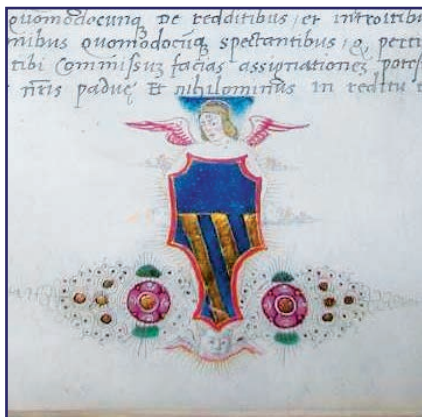 quomodocunq; De redditibus / et introitibu
nnibus quomodocuq; spectantibus / q, perti
tibi Commissuz facias assignationez potes
nris paduę Et nihilominus in reditu t